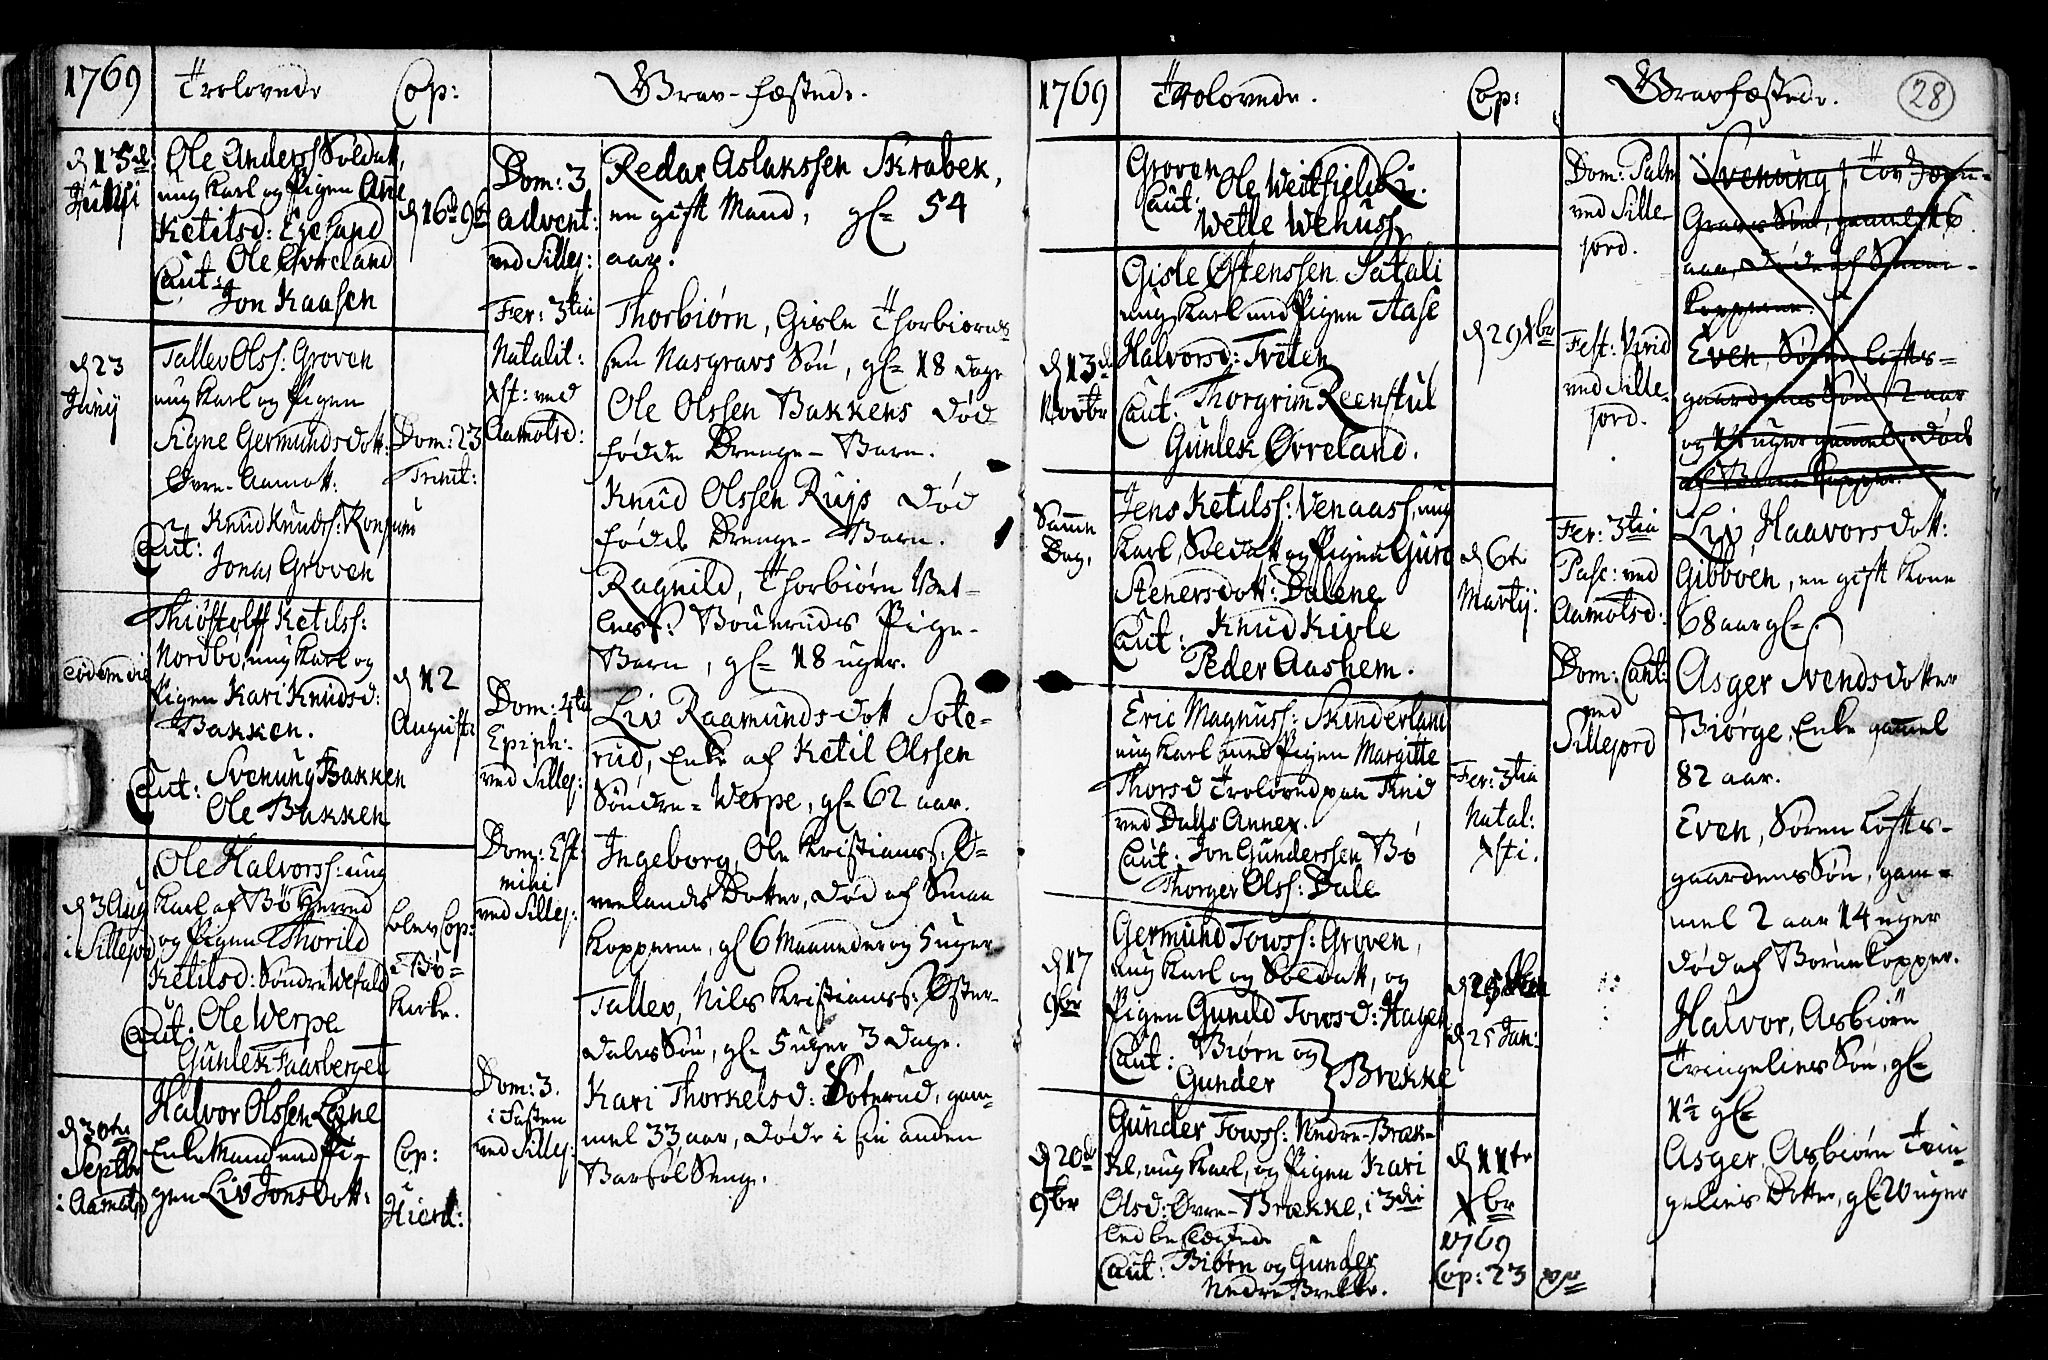 1769
Trolovede
Cop:
Grav-fæstede.
d 15de
Julij
Ole Anderss Soldatt,
ung Karl og Pigen Ane
Ketilsd: Egeland
Ole Øvreland
Caut:
Jon Kaasen
d 16de 9br
d 23
Junij
Tallev Olss: Groven
ung Karl og Pigen
Signe Germundsdott:
Øvre-Aamott:
Knud Knuds: Ronjuus
Caut:
Jonas Groven
Dom: 23
Trinit:
eodem die
Thiøstolff Ketilss:
Nordbø, ung Karl og
Pigen Kari Knudsd:
Bakken.
Caut: Svenung Bakken
Ole Bakken
d 12
August:
d 3 Aug
i Sillejord
Ole Halvorss: ung
Karl af Bø Herred
og Pigen Thorild
Ketilsd: Søndre Wefald
Caut: Ole Werpe
Gunlek Faarberget
blev Cop:
i Bø-
Kirke.
d 30te
Septbr
i Aamotsd
Halvor Olssen Leine
Enke Mand med Pi-
gen Liv Jonsdott:
Cop:
i
Hierd:
Dom: 3
Advent:
ved Sillej:
Redar Aslakssen Skrabek,
en gift Mand, gl= 54
aar.
Fer: 3tia
Natalit:
Xst: ved
Aamotsd:
Thorbiørn, Gisle Thorbiorns
sen Nasgravs Søn, gl= 18 dage
Ole Olssen Bakkens død
fødde Drenge-Barn.
Knud Olssen Rujs død
fødde Drenge-Barn.
Ragnild, Thorbiørn Vet-
less: Bouerudes Pige-
Barn, gl= 18 uger.
Dom: 4ta
Epiph:
ved Sillej:
Liv Raamundsdott Sote-
rud, Enke af Ketil Olssen
Søndre=Werpe, gl= 62 aar.
Dom: Est:
mihi
ved Sillej:
Ingeborg, Ole Kristianss: Ø-
verlands Dotter, død af Smaa
Kopperne, gl 6 Maaneder og 5 uger
Tallev, Nils Kristianss: Øster-
dalens Søn, gl= 5 uger 3 dage.
Dom: 3.
i Fasten
ved Sillej:
Kari Thorkelsd: Soterud, gam-
mel 33 aar, døde i Ein anden
Barsøl Seng.
1769
Trolovede.
Cop:
Gravfæstede.
28
Groven
Caut: Ole Weitfield Li.
Wetle Wehuss
d 13de
Novbr
Gisle Østenssen Satali
ung Karl med Pigen Aase
Halvorsd: Tveten
Caut: Thorgrim Reenstul
Gunlek Øvreland.
d 29 Xbr
Samme
Dag,
Jens Ketilss: Venaass, ung
Karl, Soldatt og Pigen Guro
Stenersdott: Dalene
Caut: Knud Kivle
Peder Aashem.
d 6te
Martij:
Eric Magnuss: Skinderland
ung Karl med Pigen Margitte
Thorsd Troloved paa
ved Dalls Annex.
Caut: Jon Gunderssen Bø
Thorger Olss: Dale
Fer: 3tia
Natal:
Xsti.
d 17
9br
Germund Towss: Groven,
ung Karl og Soldatt, og
Pigen Gunild Towsd: Hagen
Caut: Biørn og
Gunder } Brekke
d 25 Jan:
d 20de
9br
Gunder Towss: Nedre-Bræk-
ke, ung Karl, og Pigen Kari
Olsd: Øvre-Brække, i 3die
led beslægtede
Caut: Biørn og Gunder
Nedre Brekke.
d 11te
Xbr
1769
Cop: 23
Dom: Palm
ved Sille-
jord.
Svenung, Tov
Gravs Søn, gammel 16
aar, døde af Smaa-
kopperne.
Fest: Virid
ved Sille-
jord.
Even, Søren Lofts-
gaardens Søn, 2 aar
og 14 uger gammel, død
af Barne Kopper.
Fer: 3tia
Pasc: ved
Aamotsd:
Liv, Haavorsdott:
Gibbøen, en gift Kone
68 aar gl=.
Dom: Cant:
ved
Sillejord
Asger Svendsdotter
Biørge, Enke gammel
82 aar.
Even, Søren Lofts-
gaardens Søn, gam-
mel 2 aar 14 uger
død af Børnekopper.
Halvor, Asbiørn
Tvingeliens Søn, gl=
1½ gl=
Asger, Asbiørn Tvin-
geliens Dotter, gl= uger